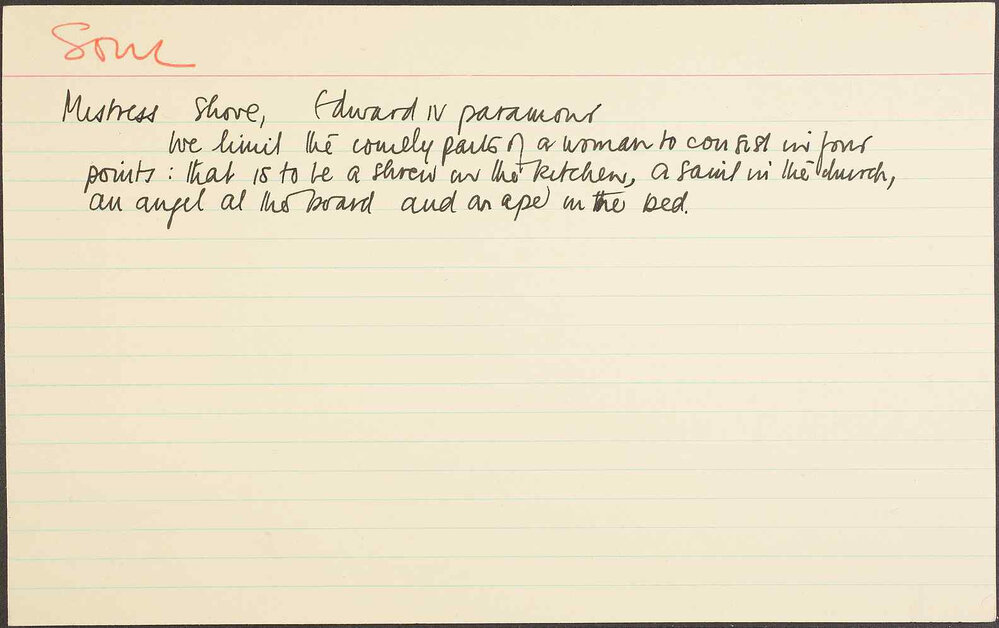 Soul
Mistress Shore, Edward IV paramour
We limit the comely parts of a woman to consist in four
points: that is to be a shrew in the kitchen, a saint in the church,
an angel at the board and an ape in the bed.